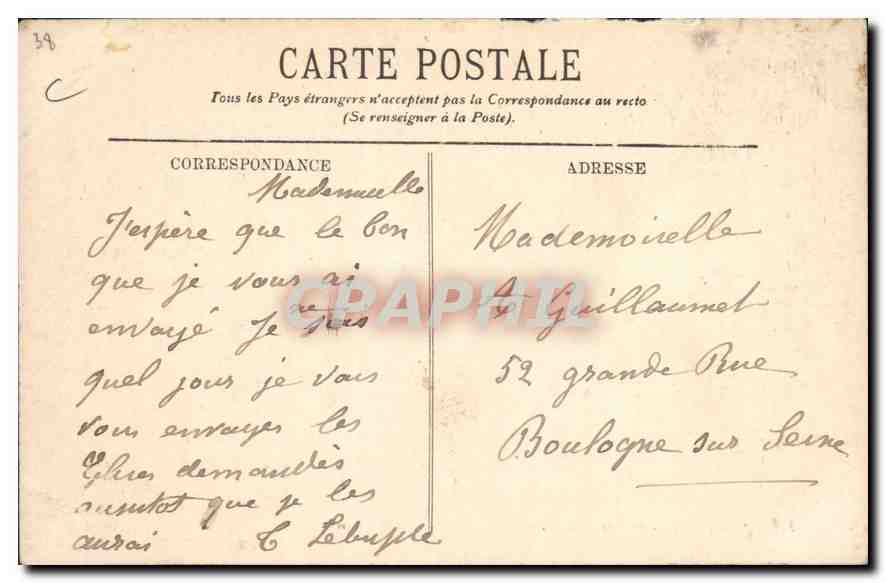 38
CARTE POSTALE
Tous les Pays étrangers n'acceptent pas la Correspondance au recto
(Se renseigner à la Poste).
CORRESPONDANCE
Mademoiselle
J'espère que le bon
que je vous ai
envoyé Je ne sais
quel jour je vais
vous envoyer les
demandés
aussitot que je les
aurai
ADRESSE
Mademoiselle
Guillaumet
52 grande Rue
Boulogne sur Seine
CPAPHIL